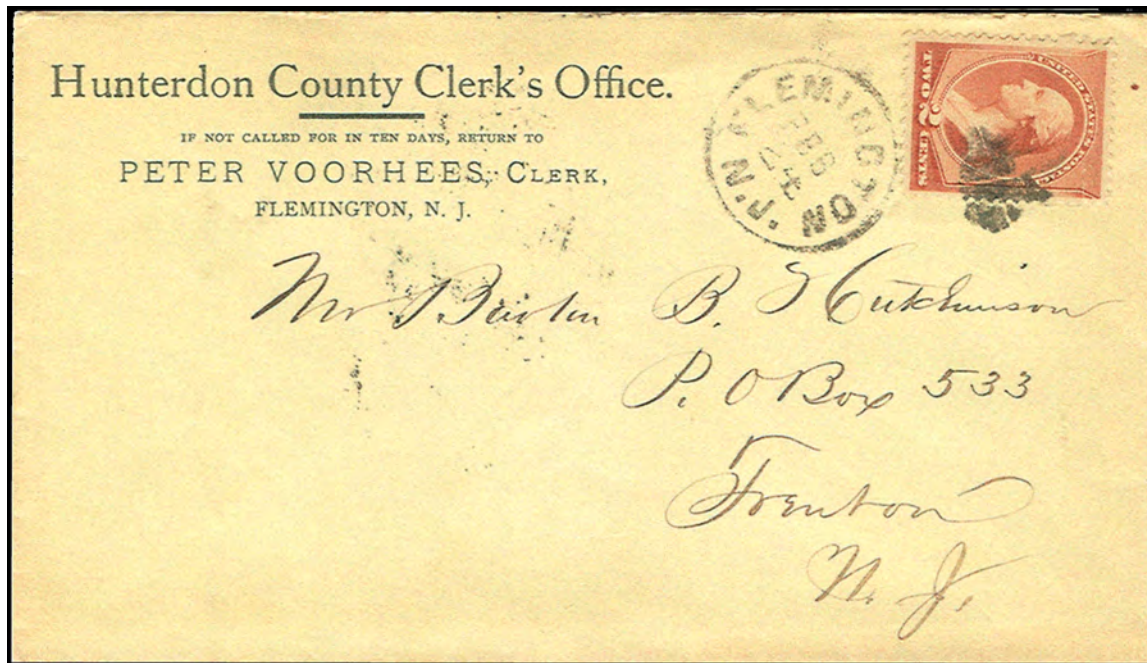 Hunterdon County Clerk's Office.
IF NOT CALLED FOR IN TEN DAYS, RETURN TO
PETER VOORHEES, CLERK,
FLEMINGTON, N. J.
FLEMINGTON N.J.
FEB
24
UNITED STATES POSTAGE
TWO 2 CENTS
Mr B. Hutchinson
P. O Box 533
Trenton
N. J.